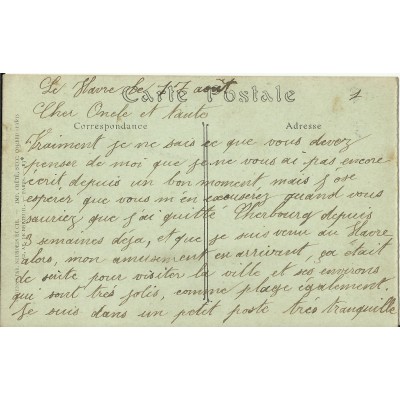 Le Havre le 17 août
Carte Postale
Cher Oncle et tante
Correspondance
Adresse
Vraiment je ne sais ce que vous devez
penser de moi que je ne vous ai pas encore
écrit depuis un bon moment, mais j'ose
esperer que vous m'en excuserez quand vous
sauriez que j'ai quitté Cherbourg depuis
3 semaines déja, et que je suis venu au Havre
alors, mon amusement en arrivant, ça était
de suite pour visiter la ville et ses environs
qui sont trés jolis, comme plage également.
Je suis dans un petit poste trés tranquille